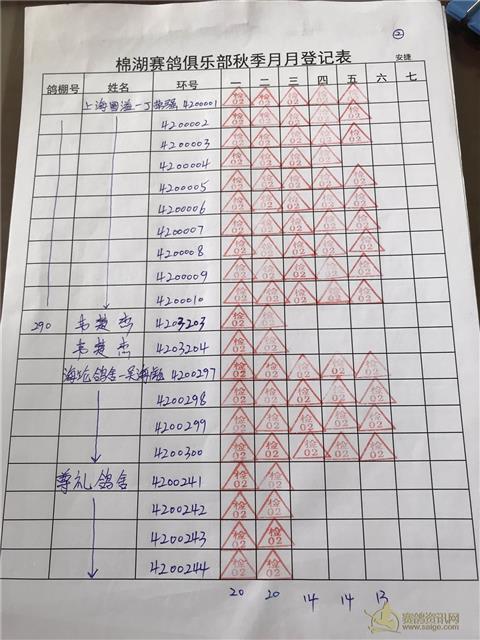 ②
棉湖赛鸽俱乐部秋季月月登记表 安捷
鸽棚号 姓名 环号 一 二 三 四 五 六 七
上海 一丁 4200001 检02 检02 检02 检02 检02
4200002 检02 检02 检02 检02 检02
4200003 检02 检02 检02 检02 检02
4200004 检02 检02 检02 检02
4200005 检02 检02 检02 检02 检02
4200006 检02 检02 检02 检02 检02
4200007 检02 检02 检02 检02 检02
4200008 检02 检02 检02 检02 检02
4200009 检02 检02 检02 检02 检02
4200010 检02 检02 检02 检02 检02
290 韦楚杰 4203203 检02 检02
韦楚杰 4203204 检02 检02
鸽舍一吴 4200297 检02 检02 检02 检02 检02
4200298 检02 检02 检02 检02 检02
4200299 检02 检02 检02 检02 检02
4200300 检02 检02 检02 检02 检02
尊礼鸽舍 4200241 检02 检02
4200242 检02 检02
4200243 检02 检02
4200244 检02 检02
20 20 14 14 13
赛鸽资讯网
www.saige.com